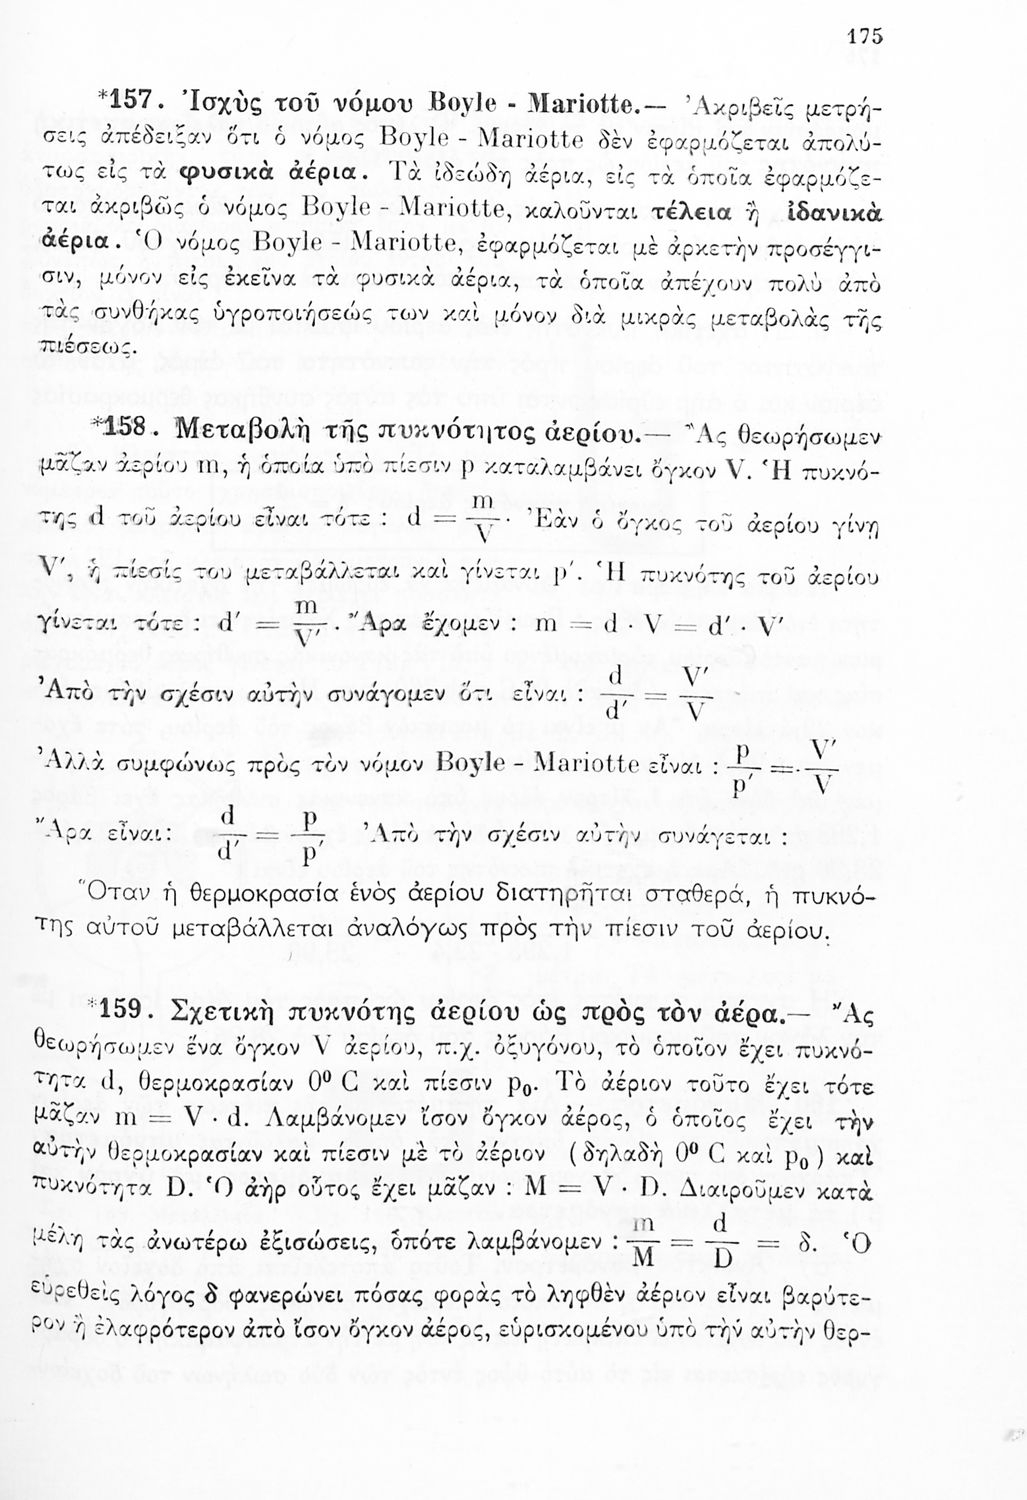 175
*157. Ἰσχὺς τοῦ νόμου Boyle - Mariotte.— Ἀκριβεῖς μετρή-
σεις ἀπέδειξαν ὅτι ὁ νόμος Boyle - Mariotte δὲν ἐφαρμόζεται ἀπολύ-
τως εἰς τὰ φυσικὰ ἀέρια. Τὰ ἰδεώδη ἀέρια, εἰς τὰ ὁποῖα ἐφαρμόζε-
ται ἀκριβῶς ὁ νόμος Boyle - Mariotte, καλοῦνται τέλεια ἢ ἰδανικὰ
ἀέρια. Ὁ νόμος Boyle - Mariotte, ἐφαρμόζεται μὲ ἀρκετὴν προσέγγι-
σιν, μόνον εἰς ἐκεῖνα τὰ φυσικὰ ἀέρια, τὰ ὁποῖα ἀπέχουν πολὺ ἀπὸ
τὰς συνθήκας ὑγροποιήσεώς των καὶ μόνον διὰ μικρὰς μεταβολὰς τῆς
πιέσεως.
*158. Μεταβολὴ τῆς πυκνότητος ἀερίου.— Ἂς θεωρήσωμεν
μᾶζαν ἀερίου m, ἡ ὁποία ὑπὸ πίεσιν p καταλαμβάνει ὄγκον V. Ἡ πυκνό-
της d τοῦ ἀερίου εἶναι τότε : d = m/V. Ἐὰν ὁ ὄγκος τοῦ ἀερίου γίνῃ
V′, ἡ πίεσίς του μεταβάλλεται καὶ γίνεται p′. Ἡ πυκνότης τοῦ ἀερίου
γίνεται τότε : d′ = m/V′. Ἄρα ἔχομεν : m = d · V = d′ · V′
Ἀπὸ τὴν σχέσιν αὐτὴν συνάγομεν ὅτι εἶναι : d/d′ = V′/V
Ἀλλὰ συμφώνως πρὸς τὸν νόμον Boyle - Mariotte εἶναι : p/p′ = V′/V
Ἄρα εἶναι: d/d′ = p/p′ Ἀπὸ τὴν σχέσιν αὐτὴν συνάγεται :
Ὅταν ἡ θερμοκρασία ἑνὸς ἀερίου διατηρῆται σταθερά, ἡ πυκνό-
της αὐτοῦ μεταβάλλεται ἀναλόγως πρὸς τὴν πίεσιν τοῦ ἀερίου.
*159. Σχετικὴ πυκνότης ἀερίου ὡς πρὸς τὸν ἀέρα.— Ἂς
θεωρήσωμεν ἕνα ὄγκον V ἀερίου, π.χ. ὀξυγόνου, τὸ ὁποῖον ἔχει πυκνό-
τητα d, θερμοκρασίαν 0⁰ C καὶ πίεσιν p₀. Τὸ ἀέριον τοῦτο ἔχει τότε
μᾶζαν m = V · d. Λαμβάνομεν ἴσον ὄγκον ἀέρος, ὁ ὁποῖος ἔχει τὴν
αὐτὴν θερμοκρασίαν καὶ πίεσιν μὲ τὸ ἀέριον (δηλαδὴ 0⁰ C καὶ p₀) καὶ
πυκνότητα D. Ὁ ἀὴρ οὗτος ἔχει μᾶζαν : M = V · D. Διαιροῦμεν κατὰ
μέλη τὰς ἀνωτέρω ἐξισώσεις, ὁπότε λαμβάνομεν : m/M = d/D = δ. Ὁ
εὑρεθεὶς λόγος δ φανερώνει πόσας φορὰς τὸ ληφθὲν ἀέριον εἶναι βαρύτε-
ρον ἢ ἐλαφρότερον ἀπὸ ἴσον ὄγκον ἀέρος, εὑρισκομένου ὑπὸ τὴν αὐτὴν θερ-